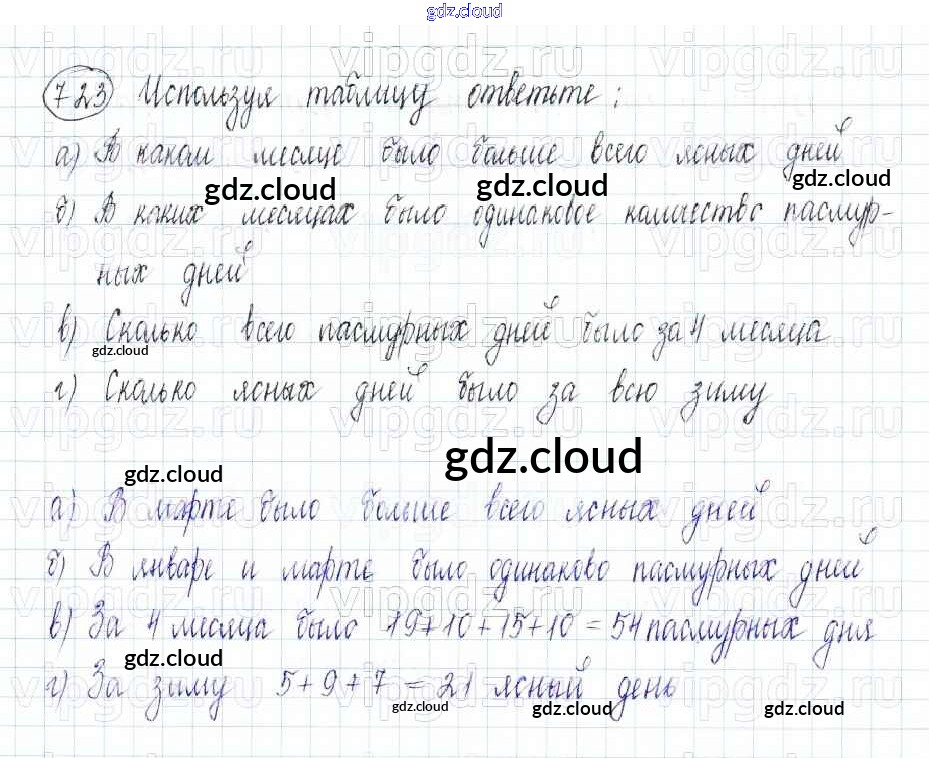 gdz.cloud
723 Используя таблицу ответьте:
а) В каком месяце было больше всего ясных дней
gdz.cloud gdz.cloud gdz.cloud
б) В каких месяцах было одинаковое количество пасмур-
ных дней
в) Сколько всего пасмурных дней было за 4 месяца
gdz.cloud
г) Сколько ясных дней было за всю зиму
gdz.cloud
gdz.cloud
а) В марте было больше всего ясных дней
б) В январе и марте было одинаково пасмурных дней
в) За 4 месяца было 19+10+15+10=54 пасмурных дня
gdz.cloud
г) За зиму 5+9+7=21 ясный день
gdz.cloud gdz.cloud gdz.cloud